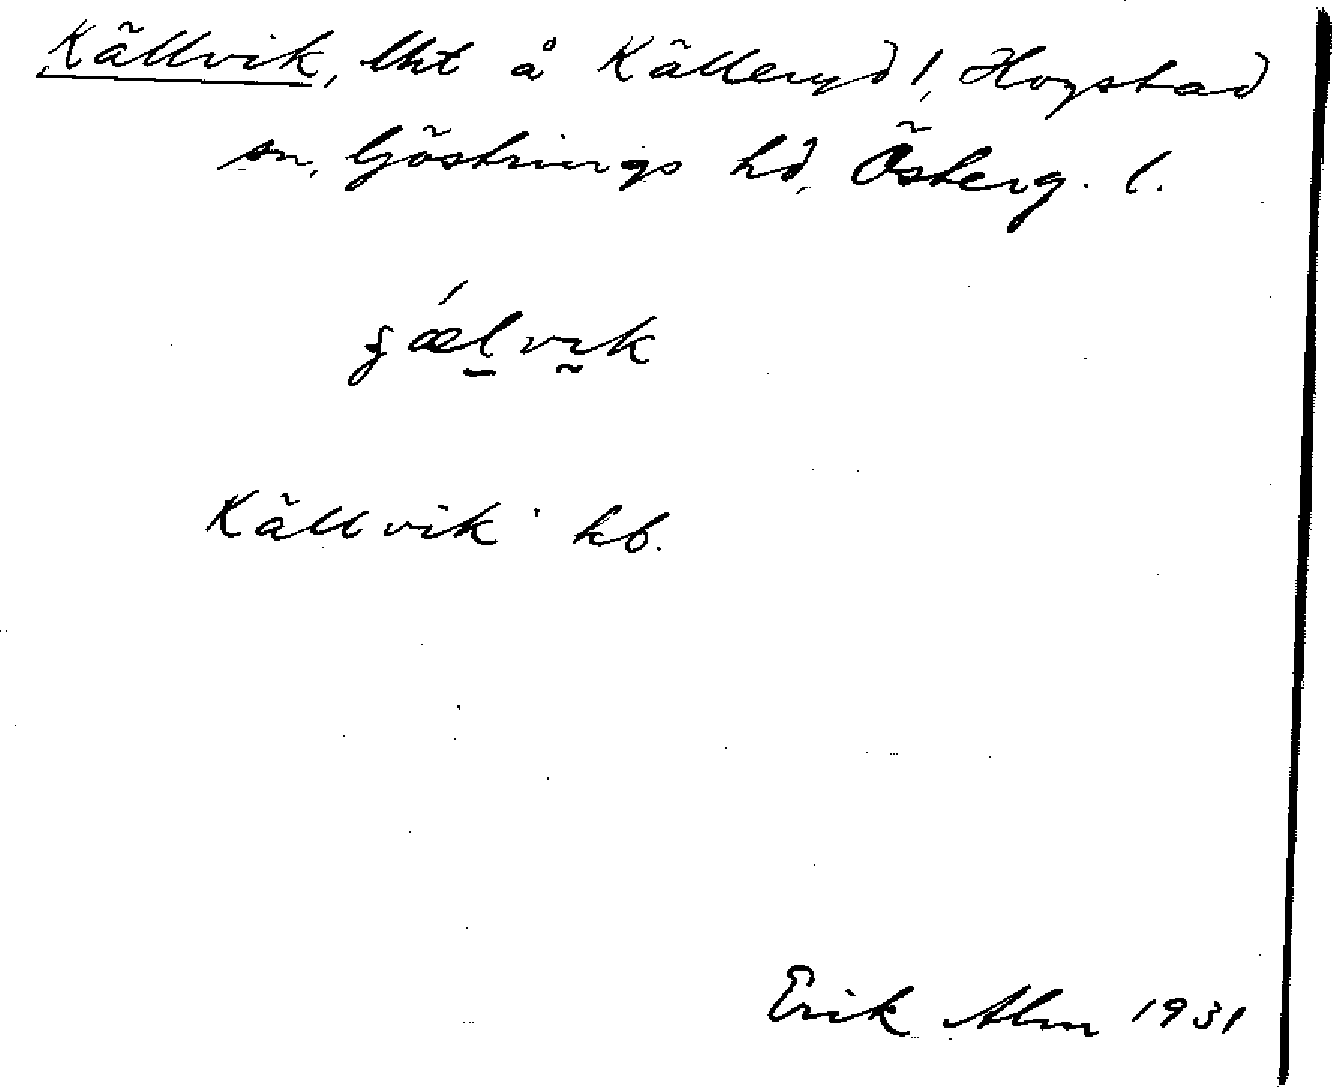 Källvik, lht å Källeryd!, Hogstad
sn, Göstrings hd, Österg. l.
ʃǽlvik
Källvik kb.
Erik Alm 1931